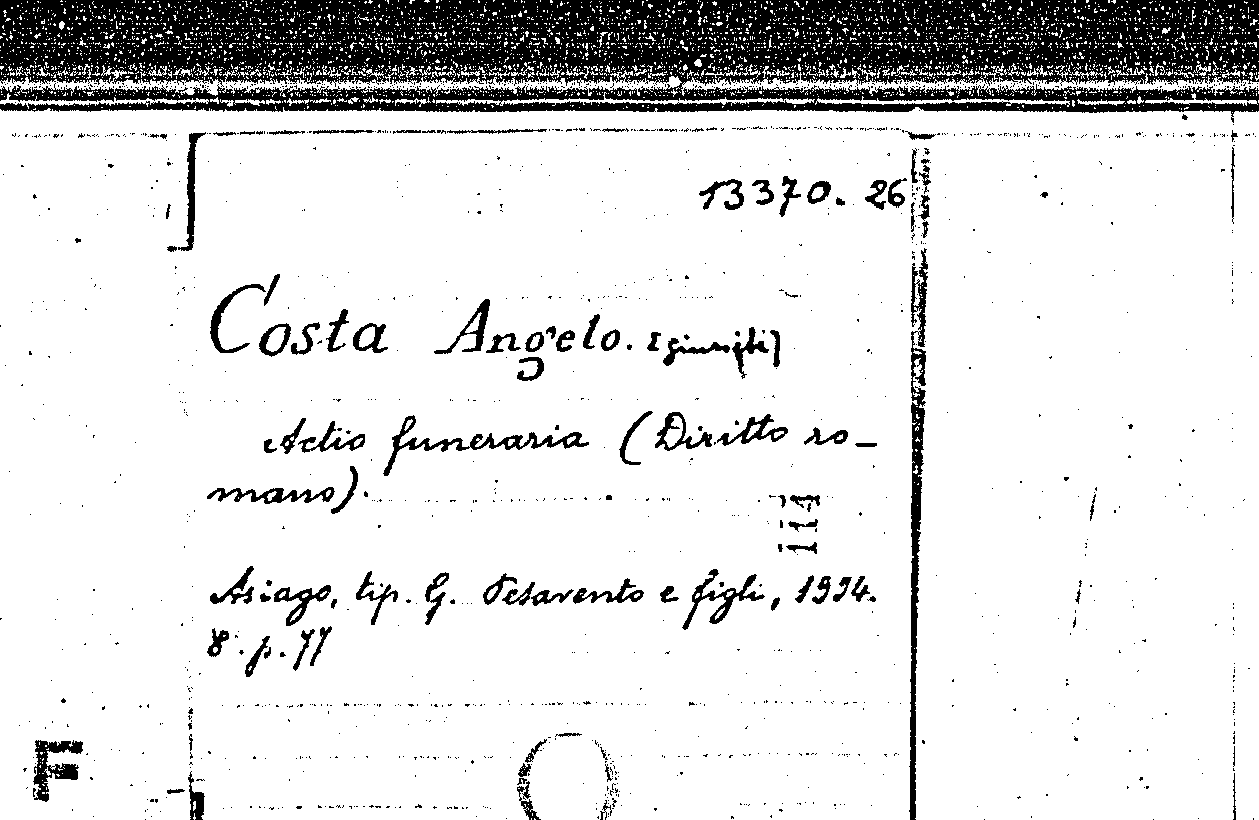 13370. 26
Costa Angelo. [giurista]
Actio funeraria (Diritto ro-
mano).
114
Asiago, tip. G. Pesavento e figli, 1934.
8°. p. 77
F